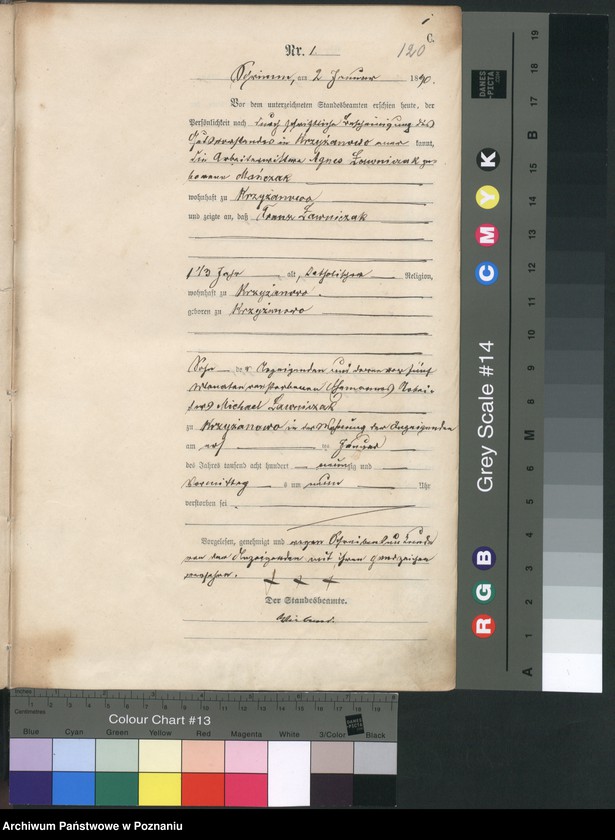 C.
120
Nr. 1.
Schrimm, am 2 Januar 1890.
Vor dem unterzeichneten Standesbeamten erschien heute, der
Persönlichkeit nach durch schriftliche Bescheinigung des
Gutsvorstandes in Krzyżanowo aner kannt,
die Arbeiterwittwe Agnes Ławniczak ge
borene Mańczak
wohnhaft zu Krzyżanowo
und zeigte an, daß Franz Ławniczak
1 1/3 Jahr alt, katholischer Religion,
wohnhaft zu Krzyżanowo
geboren zu Krzyżanowo
Sohn der Anzeigenden und deren vor fünf
Monaten verstorbenen Ehemannes Arbei-
ters Michael Ławniczak
zu Krzyżanowo in der Wohnung der Anzeigenden
am ersten Januar
des Jahres tausend acht hundert neunzig und
Vormittag s um neun Uhr
verstorben sei
Vorgelesen, genehmigt und wegen Schreibensunkunde
von der Anzeigenden mit ihren Handzeichen
versehen.
+ + +
Der Standesbeamte.
inches
Centimetres
Colour Chart #13
Blue Cyan Green Yellow Red Magenta White 3/Color Black
DANES
PICTA
.COM
Grey Scale #14
R G B
C M Y K
A 1 2 3 4 5 6 M 8 9 10 11 12 13 14 15 B 17 18 19
Archiwum Państwowe w Poznaniu